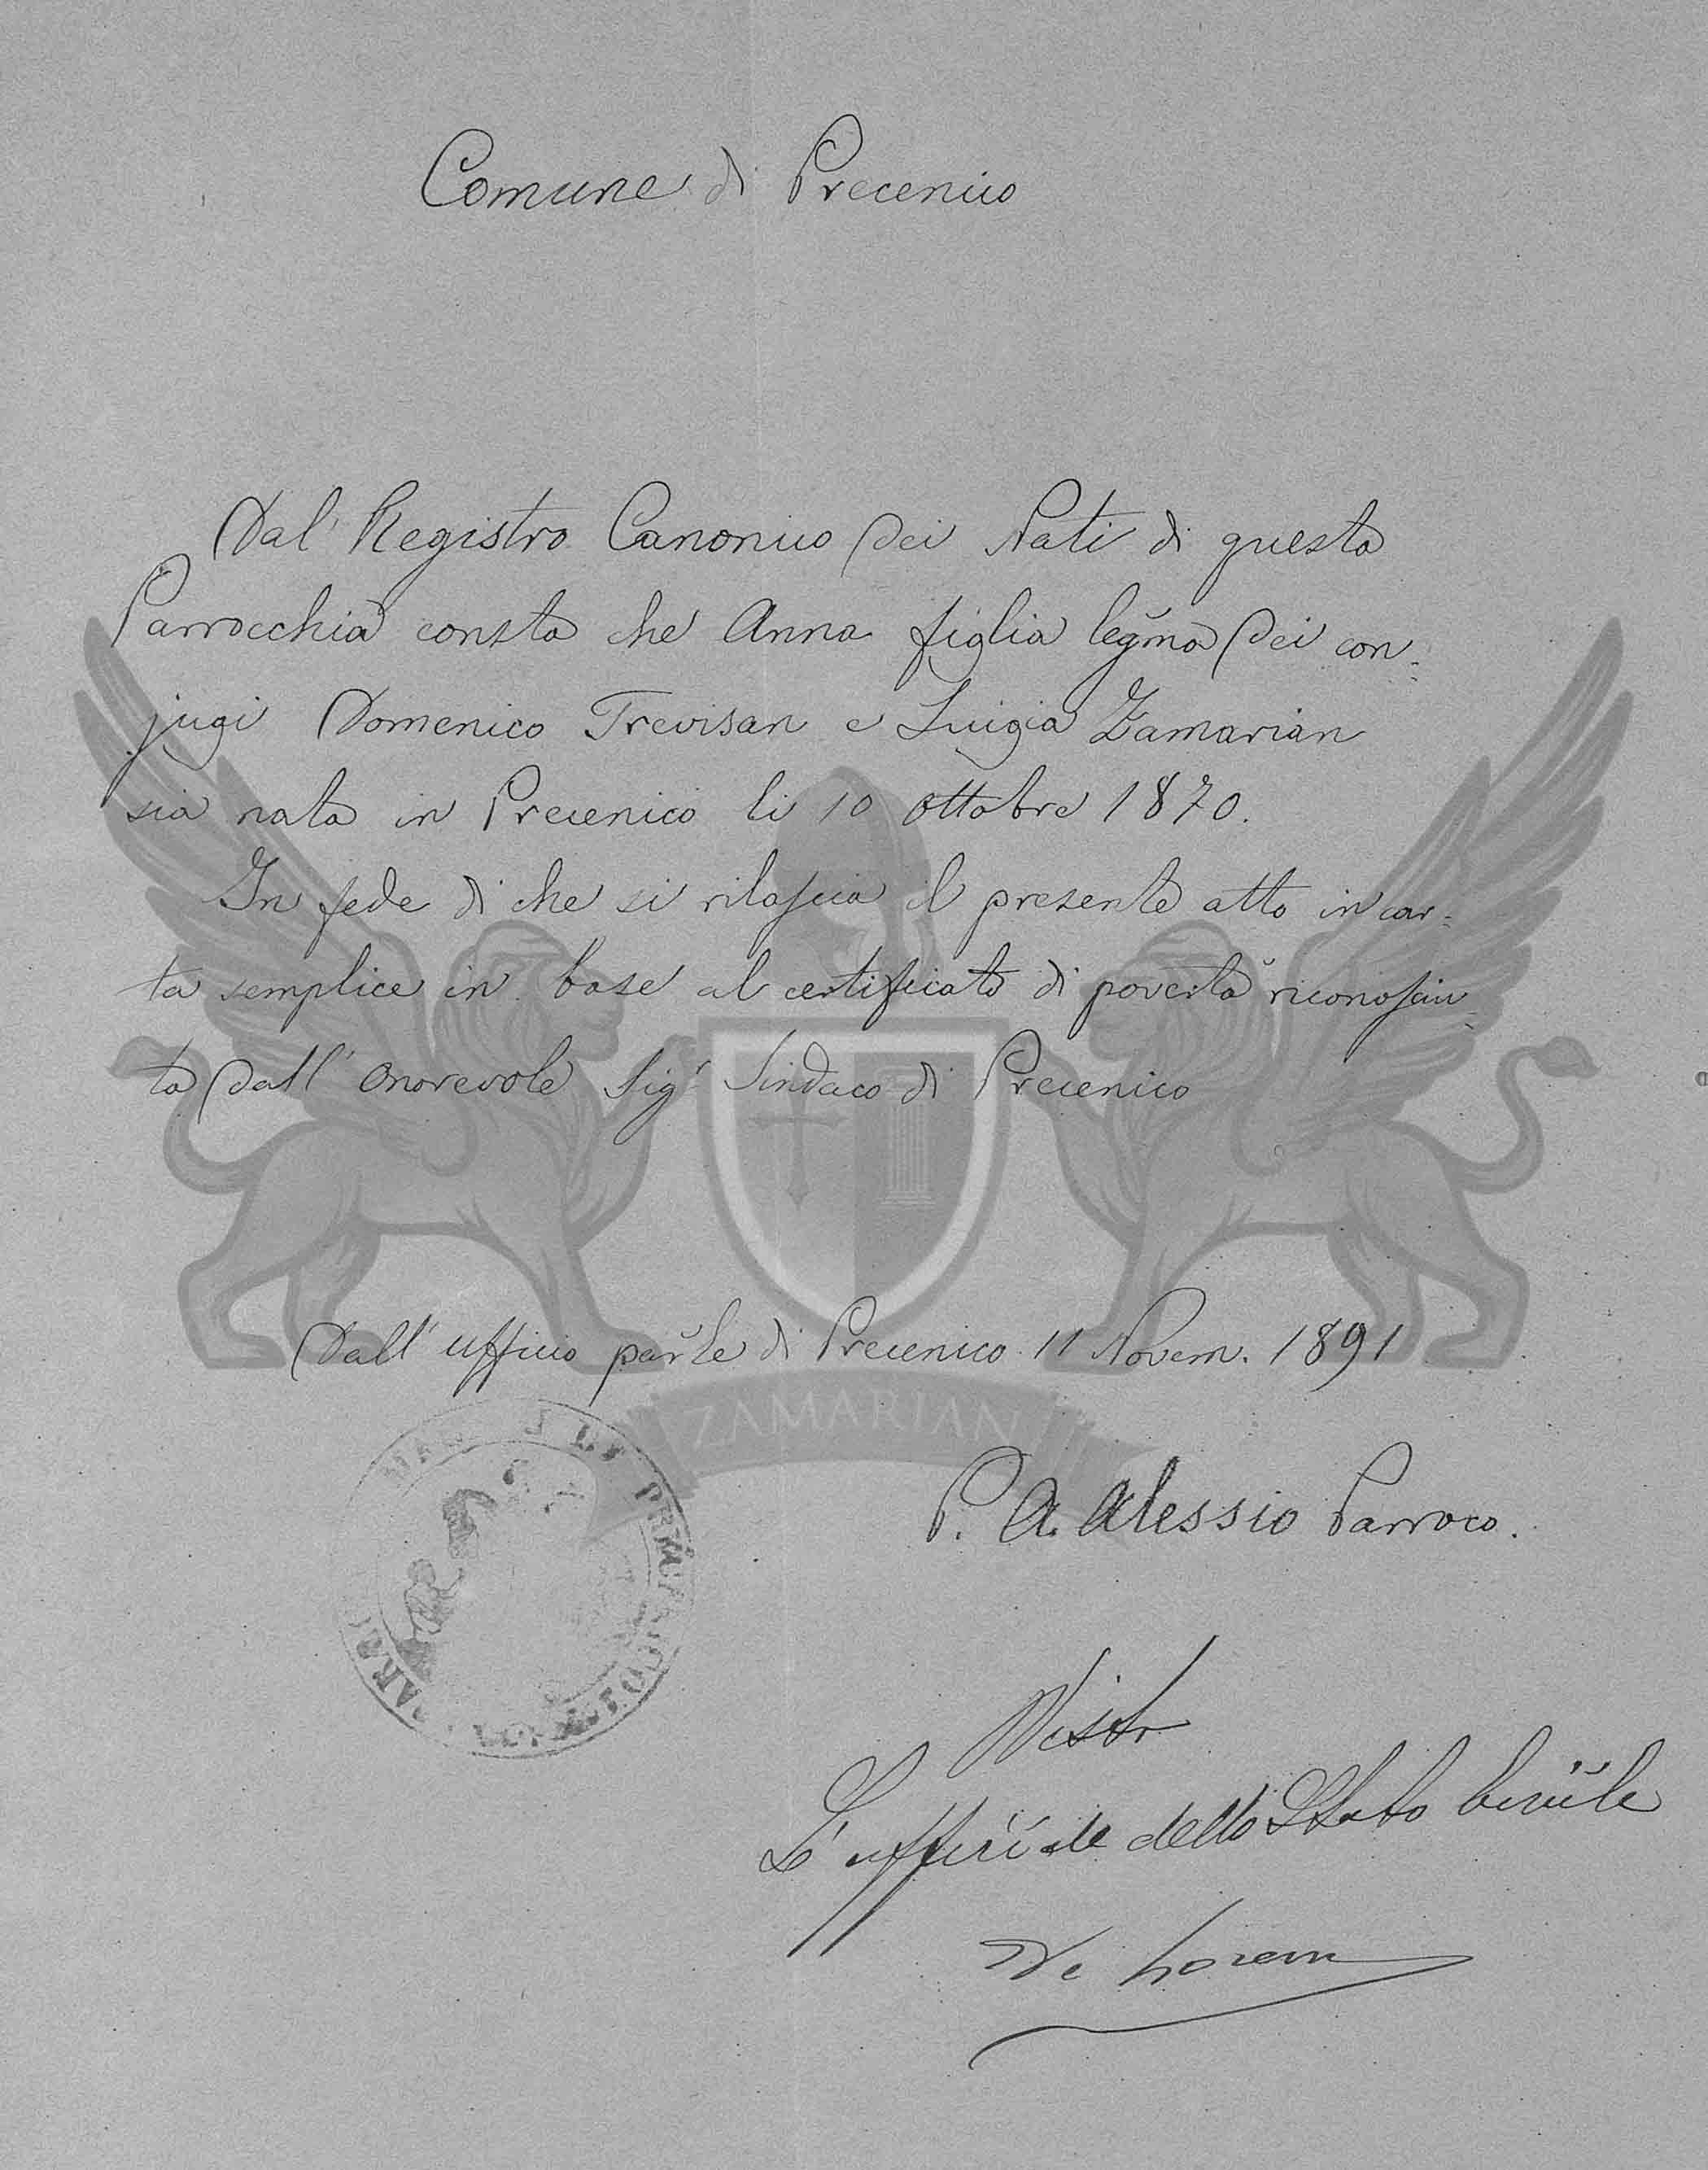 Comune di Precenico
Dal Registro Canonico dei Nati di questa
Parrocchia consta che Anna figlia legma dei con-
jugi Domenico Trevisan e Luigia Zamarian
sia nata in Precenico li 10 Ottobre 1870.
In fede di che si rilascia il presente atto in car-
ta semplice in base al certificato di povertà riconosciu-
ta dall' Onorevole Sigr Sindaco di Precenico
Dall' ufficio parle di Precenico 11 Novem. 1891
ZAMARIAN
P. A. Alessio Parroco.
Visto
L'uffiziale dello Stato Civile
De